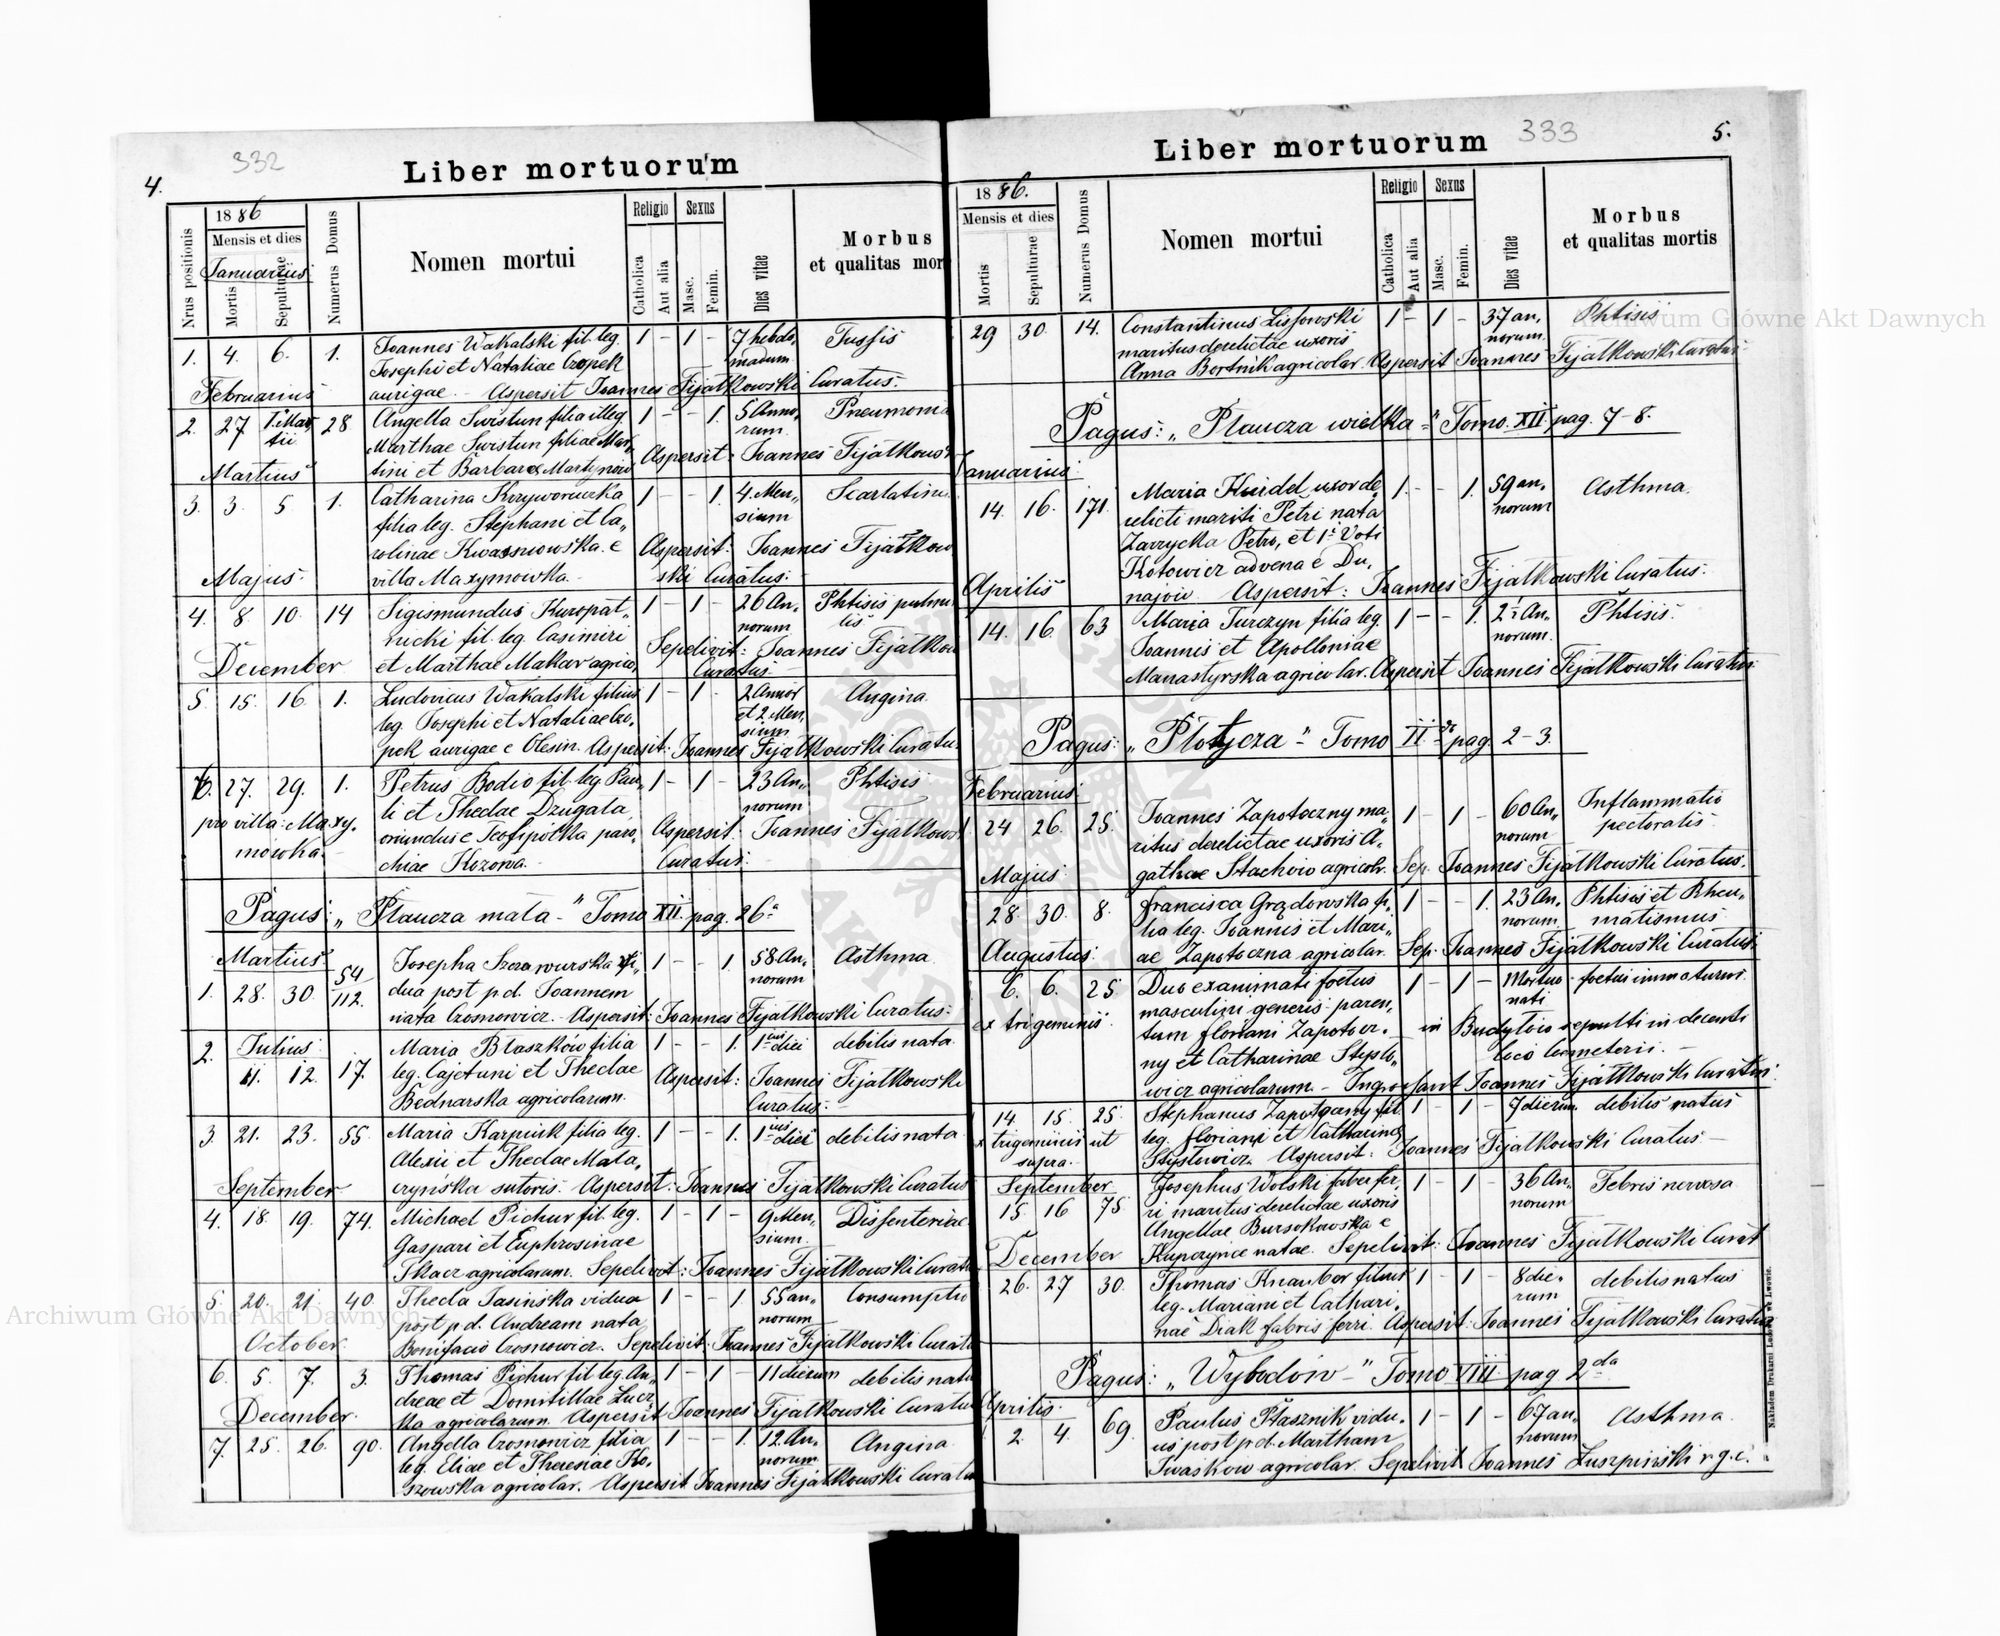 332
4.
Liber mortuorum
Nrus positionis
1886
Mensis et dies
Januarius
Mortis
Sepulturae
Numerus Domus
Nomen mortui
Religio
Catholica
Aut alia
Sexus
Masc.
Femin.
Dies vitae
Morbus
et qualitas mor
1. 4. 6. 1. Joannes Wakalski fil. leg. 1 - 1 - 7 hebdo„ Tussis
Josephi et Nataliae Czopek madum
Februarius aurigae. - Aspersit Joannes Fijałkowski Curatus.
2. 27 1. Mar„ 28 Angella Swistun filia illeg. 1 - - 1. 5 Anno„ Pneumonia
tii Marthae Swistun filiae Mar„ rum
Martius tini et Barbarae Martynow Aspersit: Joannes Fijałkows
3. 3. 5. 1. Catharina Krzyworuczka 1 - - 1 4. Men„ Scarlatina
filia leg. Stephani et Ca„ sium
rolinae Kwasniowska. e Aspersit: Joannes Fijałkow
Majus. villa Maxymowka. - ski Curatus. -
4. 8. 10. 14 Sigismundus Kuropat„ 1 - 1 - 26 An„ Phtisis pulmo
nicki fil. leg. Casimiri norum lis
et Marthae Makar agrico„ Sepelivit: Joannes Fijałkow
December Curatus. -
5. 15. 16. 1. Ludovicus Wakalski filius 1 - 1 - 2 Annor Angina.
leg. Josephi et Nataliae Czo„ et 2 Men„
sium
pek aurigae e Olesin. Aspersit: Joannes Fijałkowski Curatu
6. 27. 29. 1. Petrus Bodio fil. leg Pau„ 1 - 1 - 23 An„ Phtisis
li et Theclae Dzugala norum
pro villa: Maxy. oriundus e Teofipolka paro„ Aspersit: Joannes Fijałkows
mowka. - chiae Kozowa. - Curatus. -
Pagus: „Płaucza mała -" Tomo XII. pag. 26ª
Martius Josepha Szerawurska vi„ 1 - - 1. 58 An„ Asthma
1. 28. 30. 54/112. dua post p. d. Joannem norum
nata Czosnowicz. - Aspersit: Joannes Fijałkowski Curatus.
2. Julius. Maria Błaszkow filia 1 - - 1. 1 diei debilis nata.
11. 12. 17. leg. Cajetani et Theclae Aspersit: Joannes Fijałkowski
Bednarska agricolarum. Curatus. -
3. 21. 23. 55. Maria Karpiuk filia leg. 1 - - 1. 1 diei debilis nata
Alexii et Theclae Mata„
September czyńska sutoris. - Aspersit: Joannes Fijałkowski Curatus
4. 18. 19. 74. Michael Pichur fil. leg. 1 - 1 - 9 Men„ Dissenteriae
Gaspari et Euphrosinae sium
Tkacz agricolarum. Sepelivit: Joannes Fijałkowski Curatu
5. 20. 21. 40. Thecla Jasińska vidua 1 - - 1 55 an„ Consumptio
post p. d. Andream nata norum
October. Bonifacio Czosnowicz. Sepelivit: Joannes Fijałkowski Curatu
6. 5. 7. 3. Thomas Pichur fil leg. An„ 1 - 1 - 11 dierum debilis natu
dreae et Domitillae Lucz„
December. ka agricolarum. Aspersit Joannes Fijałkowski Curatu
7. 25. 26. 90. Angella Czosnowicz filia 1 - - 1. 12. An„ Angina
leg. Eliae et Theresiae Ko„ norum
szowska agricolar. Aspersit Joannes Fijałkowski Curatu
333
5.
Liber mortuorum
1886.
Mensis et dies
Mortis
Sepulturae
Numerus Domus
Nomen mortui
Religio
Catholica
Aut alia
Sexus
Masc.
Femin.
Dies vitae
Morbus
et qualitas mortis
29 30. 14. Constantinus Lissowski 1 - 1 - 37 an„ Phtisis
maritus derelictae uxoris norum
Anna Bortnik agricolar. Aspersit Joannes Fijałkowski Curatus.
Pagus: „Płaucza wielka -" Tomo. XII. pag. 7-8.
Januarius.
14. 16. 171. Maria Huidel uxor de„ 1. - - 1. 59 an„ Asthma.
relicti mariti Petri nata norum
Zarzycka Petro, et 1i Voti
Kotowicz advena e Du„
Aprilis najow. Aspersit: Joannes Fijałkowski Curatus.
14. 16. 63 Maria Turczyn filia leg 1 - - 1. 2½ An„ Phtisis.
Joannis et Apolloniae norum.
Manastyrska agricolar. Aspersit Joannes Fijałkowski Curatus.
Pagus: „Płotycza -" Tomo II. pag. 2-3.
Februarius.
24 26. 25. Joannes Zapotoczny ma„ 1 - 1 - 60 An„ Inflammatio
ritus derelictae uxoris A„ norum pectoralis.
Majus gathae Stachow agricolr. Sep. Joannes Fijałkowski Curatus.
28. 30. 8. Francisca Grądowska fi„ 1 - - 1. 23 An„ Phtisis et Rheu„
lia leg. Joannis et Mari„ norum matismus
Augustus. ae Zapotoczna agricolar. Sep. Joannes Fijałkowski Curatus.
6. 6. 25. Duo exanimati foetus 1 - 1 - Mortuo foetus immaturus.
masculini generis paren„ nati
ex trigeminis. tum Floriani Zapotocz„ in Budylow sepulti in decenti
ny et Catharinae Stysło„ loco Cemeterii. -
wicz agricolarum. - Ingrossavit Joannes Fijałkowski Curatus.
14. 15. 25. Stephanus Zapotoczny fil 1 - 1 - 7 dierum. debilis natus
x trigeminis ut leg. Floriani et Catharinae Joannes Fijałkowski Curatus -
supra. Stysłowicz. Aspersit:
September Josephus Wolski faber fer„ 1 - 1 - 36 An„ Febris nervosa
15. 16 75. ri maritus derelictae uxoris norum
Angellae Bursokowska e
December Kupczynce natae. Sepelivit: Joannes Fijałkowski Curat
26. 27 30. Thomas Knauber filius 1 - 1 - 8 die- debilis natus
leg. Mariani et Cathari„ rum
nae Diak fabris ferri. Aspersit. Joannes Fijałkowski Curatus
Pagus: „Wybudów -" Tomo VIII. pag 2da
Aprilis.
2. 4. 69. Paulus Ptasznik vidu„ 1 - 1 - 67 an„ Asthma.
us post p. d. Martham norum
Iwaśkow agricolar. Sepelivit Joannes Łuszpiński r. g. c.
Nakładem Drukarni Ludowej we Lwowie.
Archiwum Główne Akt Dawnych
Archiwum Główne Akt Dawnych